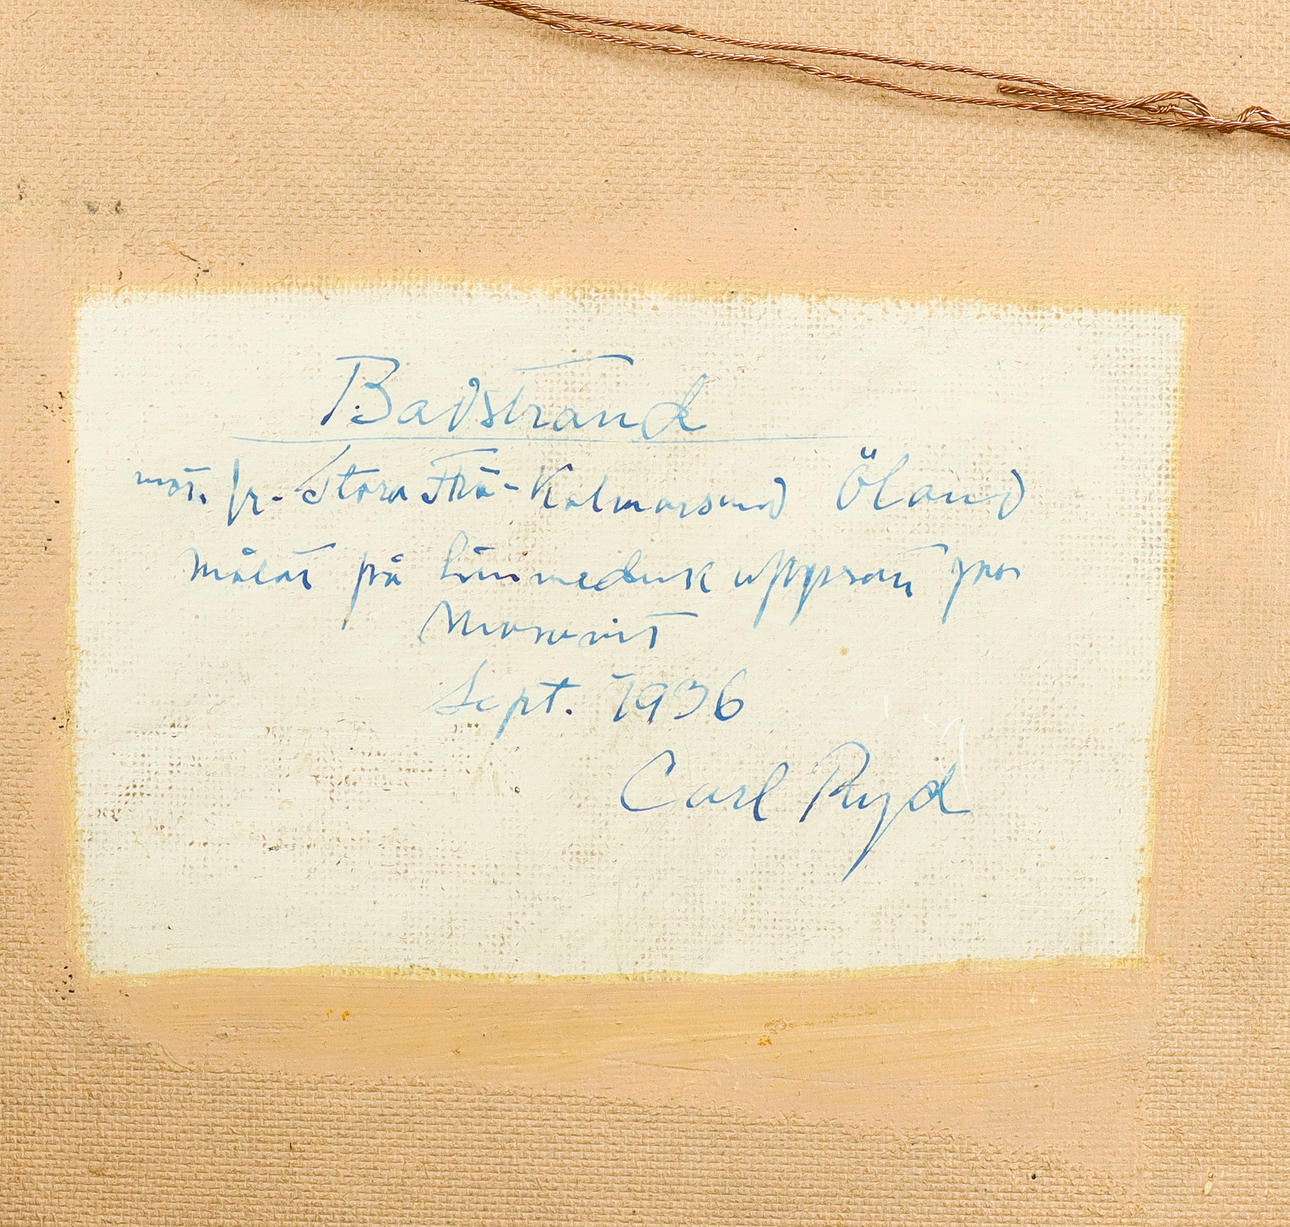 Badstrand
mot. fr. Stora Frö - Kalmarsund Öland
målat på linneduk uppsatt på
Masonit
Sept. 1936
Carl Ryd